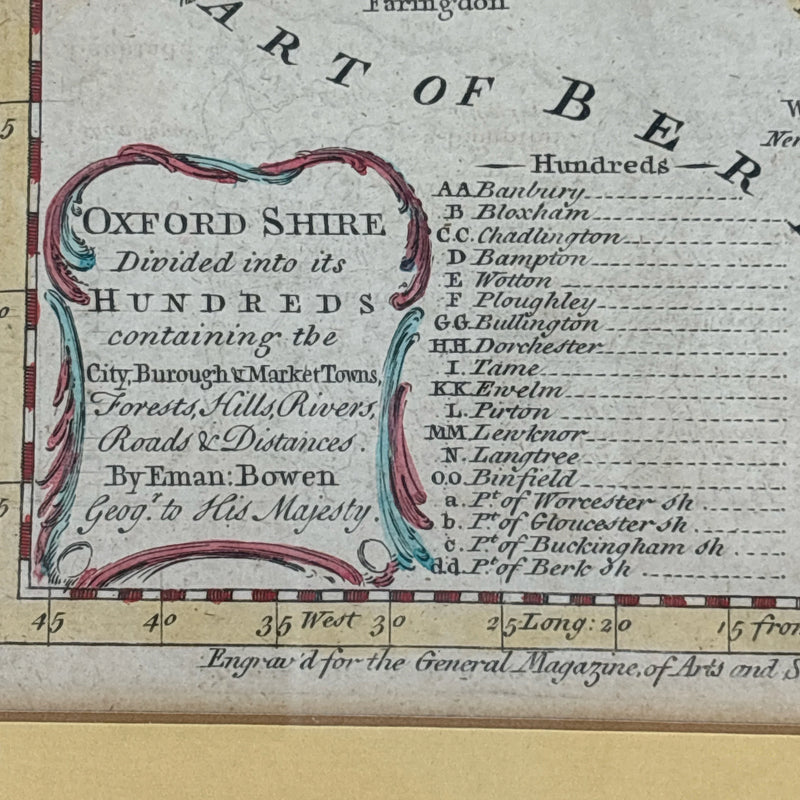 Faringdon
ART OF BER
Hundreds
AA Banbury
B Bloxham
C.C. Chadlington
D Bampton
E Wotton
F Ploughley
GG Bullington
H.H. Dorchester
I. Tame
KK Ewelm
L. Pirton
MM Lewknor
N. Langtree
o.o. Binfield
a. Pt. of Worcester sh
b. Pt. of Gloucester sh
c. Pt. of Buckingham sh
d.d. Pt. of Berk sh
OXFORD SHIRE
Divided into its
HUNDREDS
containing the
City, Burough & Market Towns,
Forests, Hills, Rivers,
Roads & Distances.
By Eman: Bowen
Geogr. to His Majesty.
5
5
45 40 35 West 30 25 Long: 20 15 from
Engrav'd for the General Magazine, of Arts and S